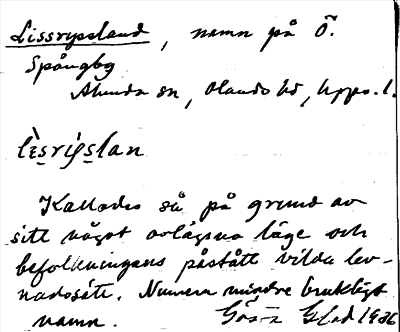 Lissryssland, namn på Ö.
Spångby
Almunda sn, Olands hd, Upps. l.
lèsrýslan
Kallades så på grund av
sitt något avlägsna läge och
befolkningens påstått vilda lev-
nadssätt. Numera mindre brukligt
namn. Gösta 1936